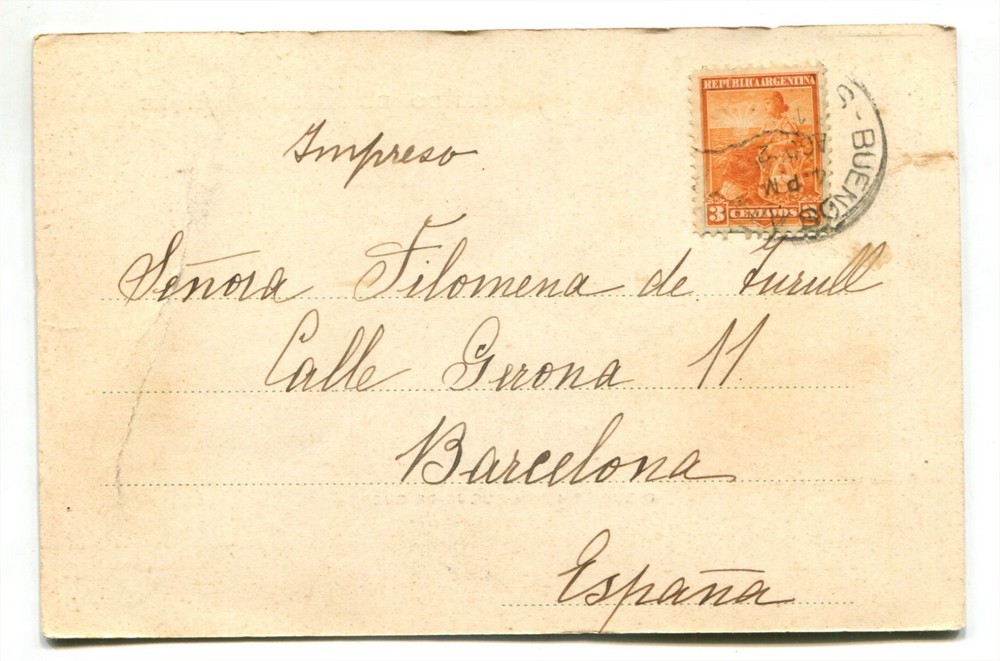 Impreso
REPÚBLICA ARGENTINA
3 CENTAVOS
BUENOS
AGO 2
4-PM
Señora Filomena de Turull
Calle Gerona 11
Barcelona
España